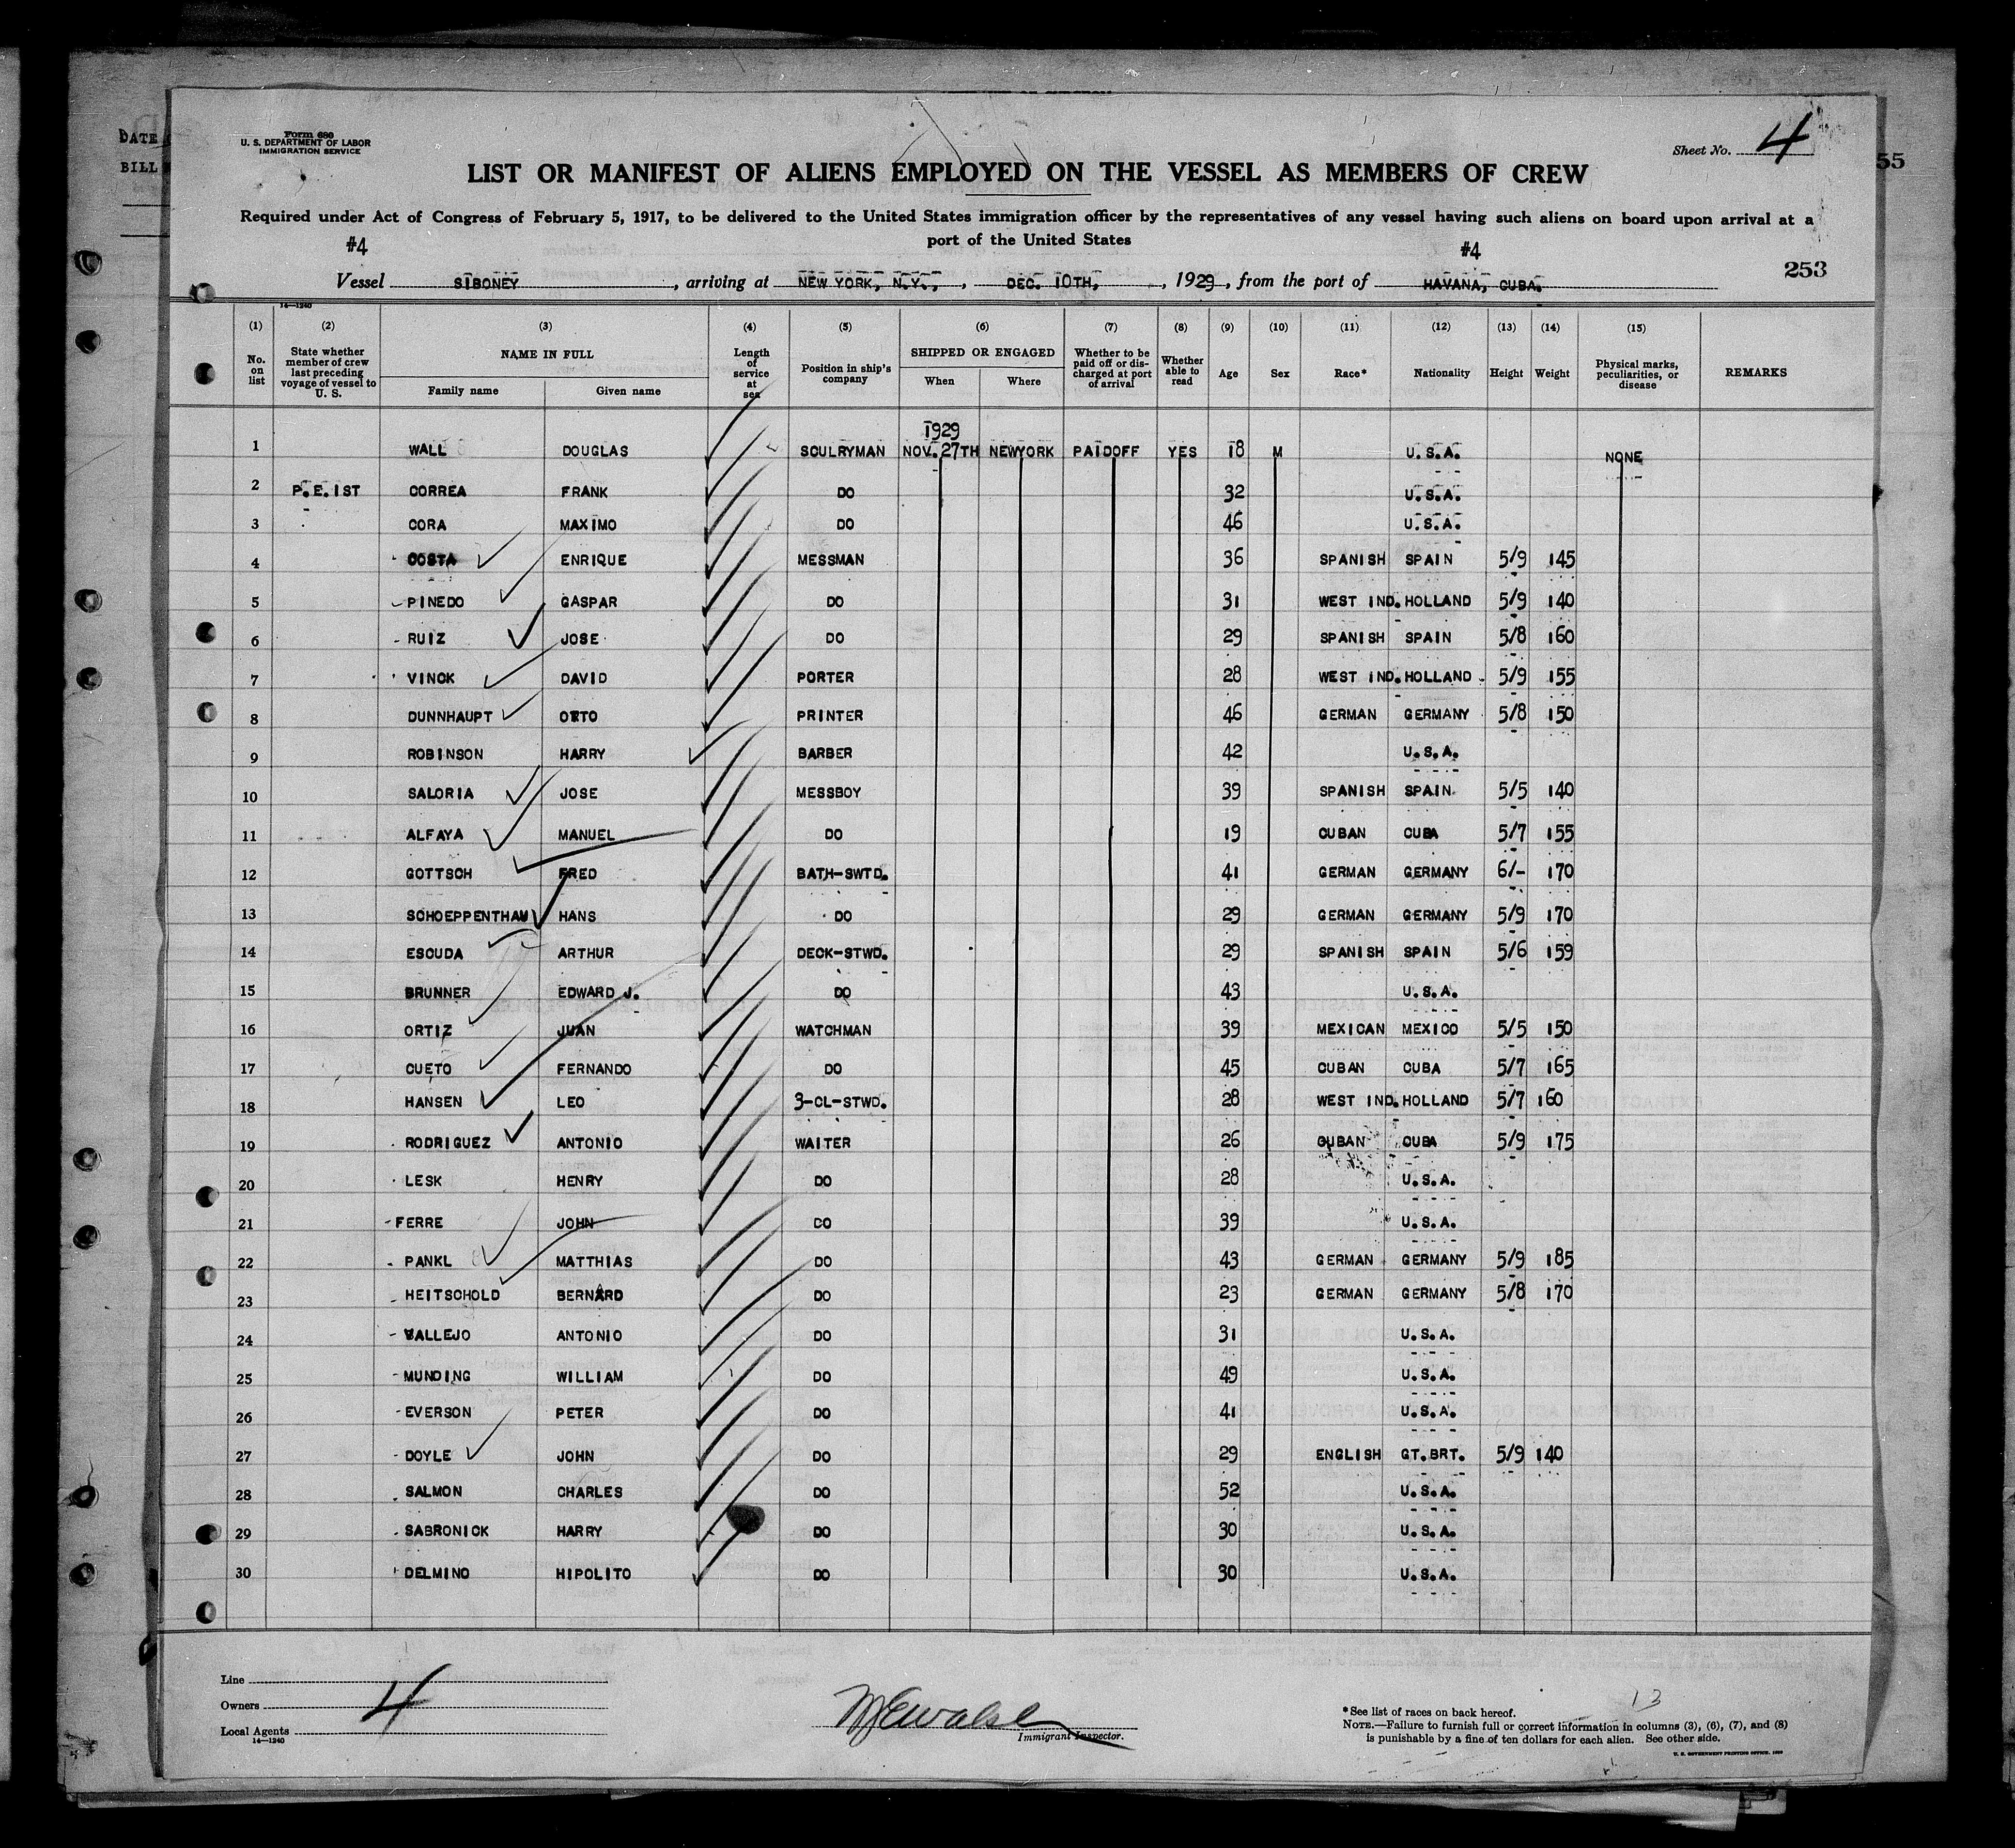 DATE
BILL
55
Form 680
U. S. DEPARTMENT OF LABOR
IMMIGRATION SERVICE
Sheet No. 4
LIST OR MANIFEST OF ALIENS EMPLOYED ON THE VESSEL AS MEMBERS OF CREW
Required under Act of Congress of February 5, 1917, to be delivered to the United States immigration officer by the representatives of any vessel having such aliens on board upon arrival at a
port of the United States
#4 #4
253
Vessel SIBONEY, arriving at NEW YORK, N.Y., DEC. 10TH, 1929, from the port of HAVANA, CUBA.
14—1240
(1) (2) (3) (4) (5) (6) (7) (8) (9) (10) (11) (12) (13) (14) (15)
No. on list | State whether member of crew last preceding voyage of vessel to U. S. | NAME IN FULL | Family name | Given name | Length of service at sea | Position in ship's company | SHIPPED OR ENGAGED | When | Where | Whether to be paid off or discharged at port of arrival | Whether able to read | Age | Sex | Race* | Nationality | Height | Weight | Physical marks, peculiarities, or disease | REMARKS
1929
1 WALL DOUGLAS SCULRYMAN NOV. 27TH NEWYORK PAIDOFF YES 18 M U.S.A. NONE
2 P.E.IST CORREA FRANK DO 32 U.S.A.
3 CORA MAXIMO DO 46 U.S.A.
4 COSTA ENRIQUE MESSMAN 36 SPANISH SPAIN 5/9 145
5 PINEDO GASPAR DO 31 WEST IND. HOLLAND 5/9 140
6 RUIZ JOSE DO 29 SPANISH SPAIN 5/8 160
7 VINCK DAVID PORTER 28 WEST IND. HOLLAND 5/9 155
8 DUNNHAUPT OTTO PRINTER 46 GERMAN GERMANY 5/8 150
9 ROBINSON HARRY BARBER 42 U.S.A.
10 SALORIA JOSE MESSBOY 39 SPANISH SPAIN 5/5 140
11 ALFAYA MANUEL DO 19 CUBAN CUBA 5/7 155
12 GOTTSCH FRED BATH-SWTD. 41 GERMAN GERMANY 6/- 170
13 SCHOEPPENTHAU HANS DO 29 GERMAN GERMANY 5/9 170
14 ESCUDA ARTHUR DECK-STWD. 29 SPANISH SPAIN 5/6 159
15 BRUNNER EDWARD J. DO 43 U.S.A.
16 ORTIZ JUAN WATCHMAN 39 MEXICAN MEXICO 5/5 150
17 CUETO FERNANDO DO 45 CUBAN CUBA 5/7 165
18 HANSEN LEO 3-CL-STWD. 28 WEST IND. HOLLAND 5/7 160
19 RODRIGUEZ ANTONIO WAITER 26 CUBAN CUBA 5/9 175
20 LESK HENRY DO 28 U.S.A.
21 FERRE JOHN DO 39 U.S.A.
22 PANKL MATTHIAS DO 43 GERMAN GERMANY 5/9 185
23 HEITSCHOLD BERNARD DO 23 GERMAN GERMANY 5/8 170
24 VALLEJO ANTONIO DO 31 U.S.A.
25 MUNDING WILLIAM DO 49 U.S.A.
26 EVERSON PETER DO 41 U.S.A.
27 DOYLE JOHN DO 29 ENGLISH GT.BRT. 5/9 140
28 SALMON CHARLES DO 52 U.S.A.
29 SABRONICK HARRY DO 30 U.S.A.
30 DELMINO HIPOLITO DO 30 U.S.A.
Line
Owners 4
Local Agents
14—1240
Immigrant Inspector.
13
*See list of races on back hereof.
NOTE.—Failure to furnish full or correct information in columns (3), (6), (7), and (8)
is punishable by a fine of ten dollars for each alien. See other side.
U. S. GOVERNMENT PRINTING OFFICE